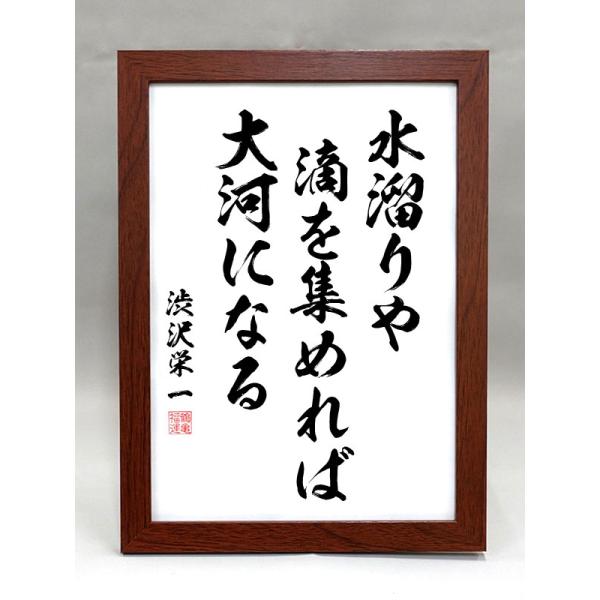 水溜りや
滴を集めれば
大河になる
渋沢栄一